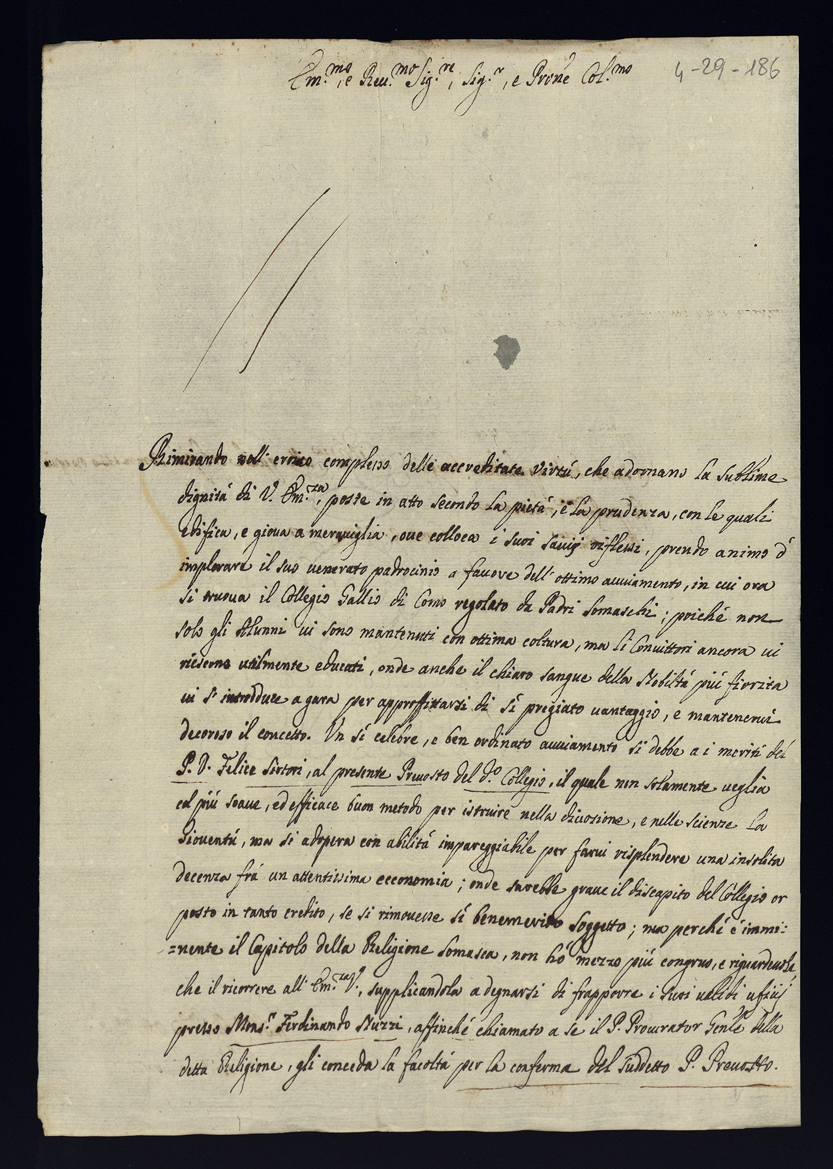 4-29-186
Em.mo, e Reu.mo Sig.re, Sig.r, e Prone Col.mo
Rimirando nell' eroico complesso delle accreditate virtú, che adornano la sublime
dignitá di V. Em.za, poste in atto secondo la pietá, e la prudenza, con le quali
edifica, e gioua a merauiglia, oue colloca i suoi sauij riflessi, prendo animo d'
implorare il suo uenerato padrocinio a fauore dell' ottimo auuiamento, in cui ora
si truoua il Collegio Gallio di Como regolato da Padri Somaschi; poiché non
solo gli Alunni ui sono mantenuti con ottima coltura, ma li Conuittori ancora ui
riescono utilmente educati, onde anche il chiaro sangue della Nobiltá piú fiorita
ui s' introduce a gara per approffittarsi di sí pregiato uantaggio, e mantenerui
decoroso il concetto. Un sí celebre, e ben ordinato auuiamento si debbe a i meriti del
P. D. Felice Sirtori, al presente Preuosto del d.o Collegio, il quale non solamente ueglia
col piú soaue, ed efficace buon metodo per istruire nella diuozione, e nelle scienze la
Giouentú, ma si adopera con abilitá impareggiabile per farui risplendere una insolita
decenza frá un attentissima economia; onde sarebbe graue il discapito del Collegio or
posto in tanto credito, se si rimouesse sí benemerito Soggetto; ma perché é immi:
:nente il Capitolo della Religione Somasca, non hó mezzo piú congruo, e riguardeuole
che il ricorrere all' Em.za V., supplicandola a degnarsi di frapporre i suoi ualidi ufizij
presso Mons.r Ferdinando Nuzzi, affinché chiamato a se il P. Procurator Gen.le della
detta Religione, gli conceda la facoltá per la conferma del suddetto P. Preuosto.